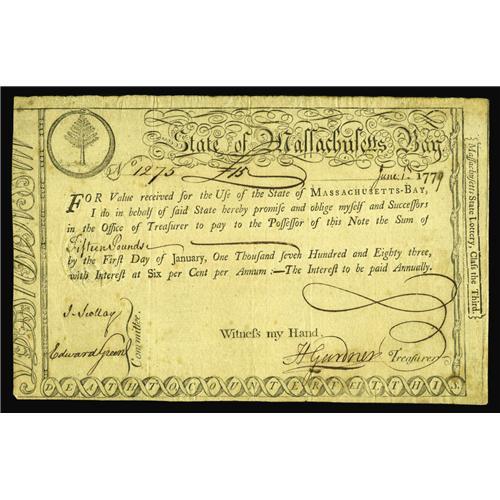 State of Massachusetts Bay
No. 1275 £15 June 1st 1779
FOR Value received for the Use of the State of MASSACHUSETTS-BAY,
I do in behalf of said State hereby promise and oblige myself and Successors
in the Office of Treasurer to pay to the Possessor of this Note the Sum of
Fifteen Pounds
by the First Day of January, One Thousand seven Hundred and Eighty three,
with Interest at Six per Cent per Annum:—The Interest to be paid Annually.
Witness my Hand,
J. Scollay
Edward Green
Committee.
H Gardner Treasurer
Massachusetts State Lottery, Class the Third.
DEATH TO COUNTERFEIT THIS